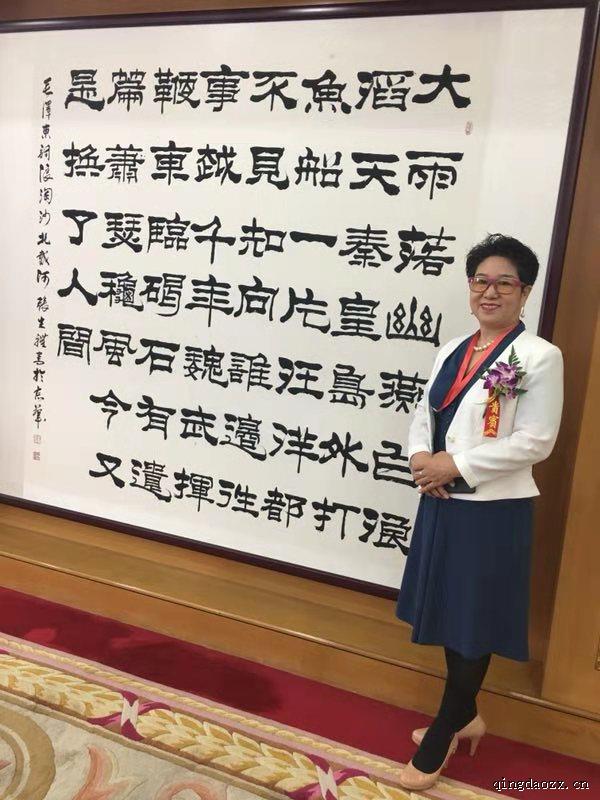 大雨落幽燕白浪
滔天秦皇島外打
魚船一片汪洋都
不見知向誰邊往
事越千年魏武揮
鞭東臨碣石有遺
篇蕭瑟穐風今又
是換了人間
毛澤東詞浪淘沙北戴河 張生書於京華
貴賓
qingdaozx.cn